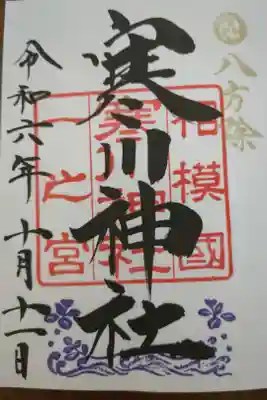 八方除
寒川神社
相模國
寒川神社
一之宮
令和六年 十月十一日